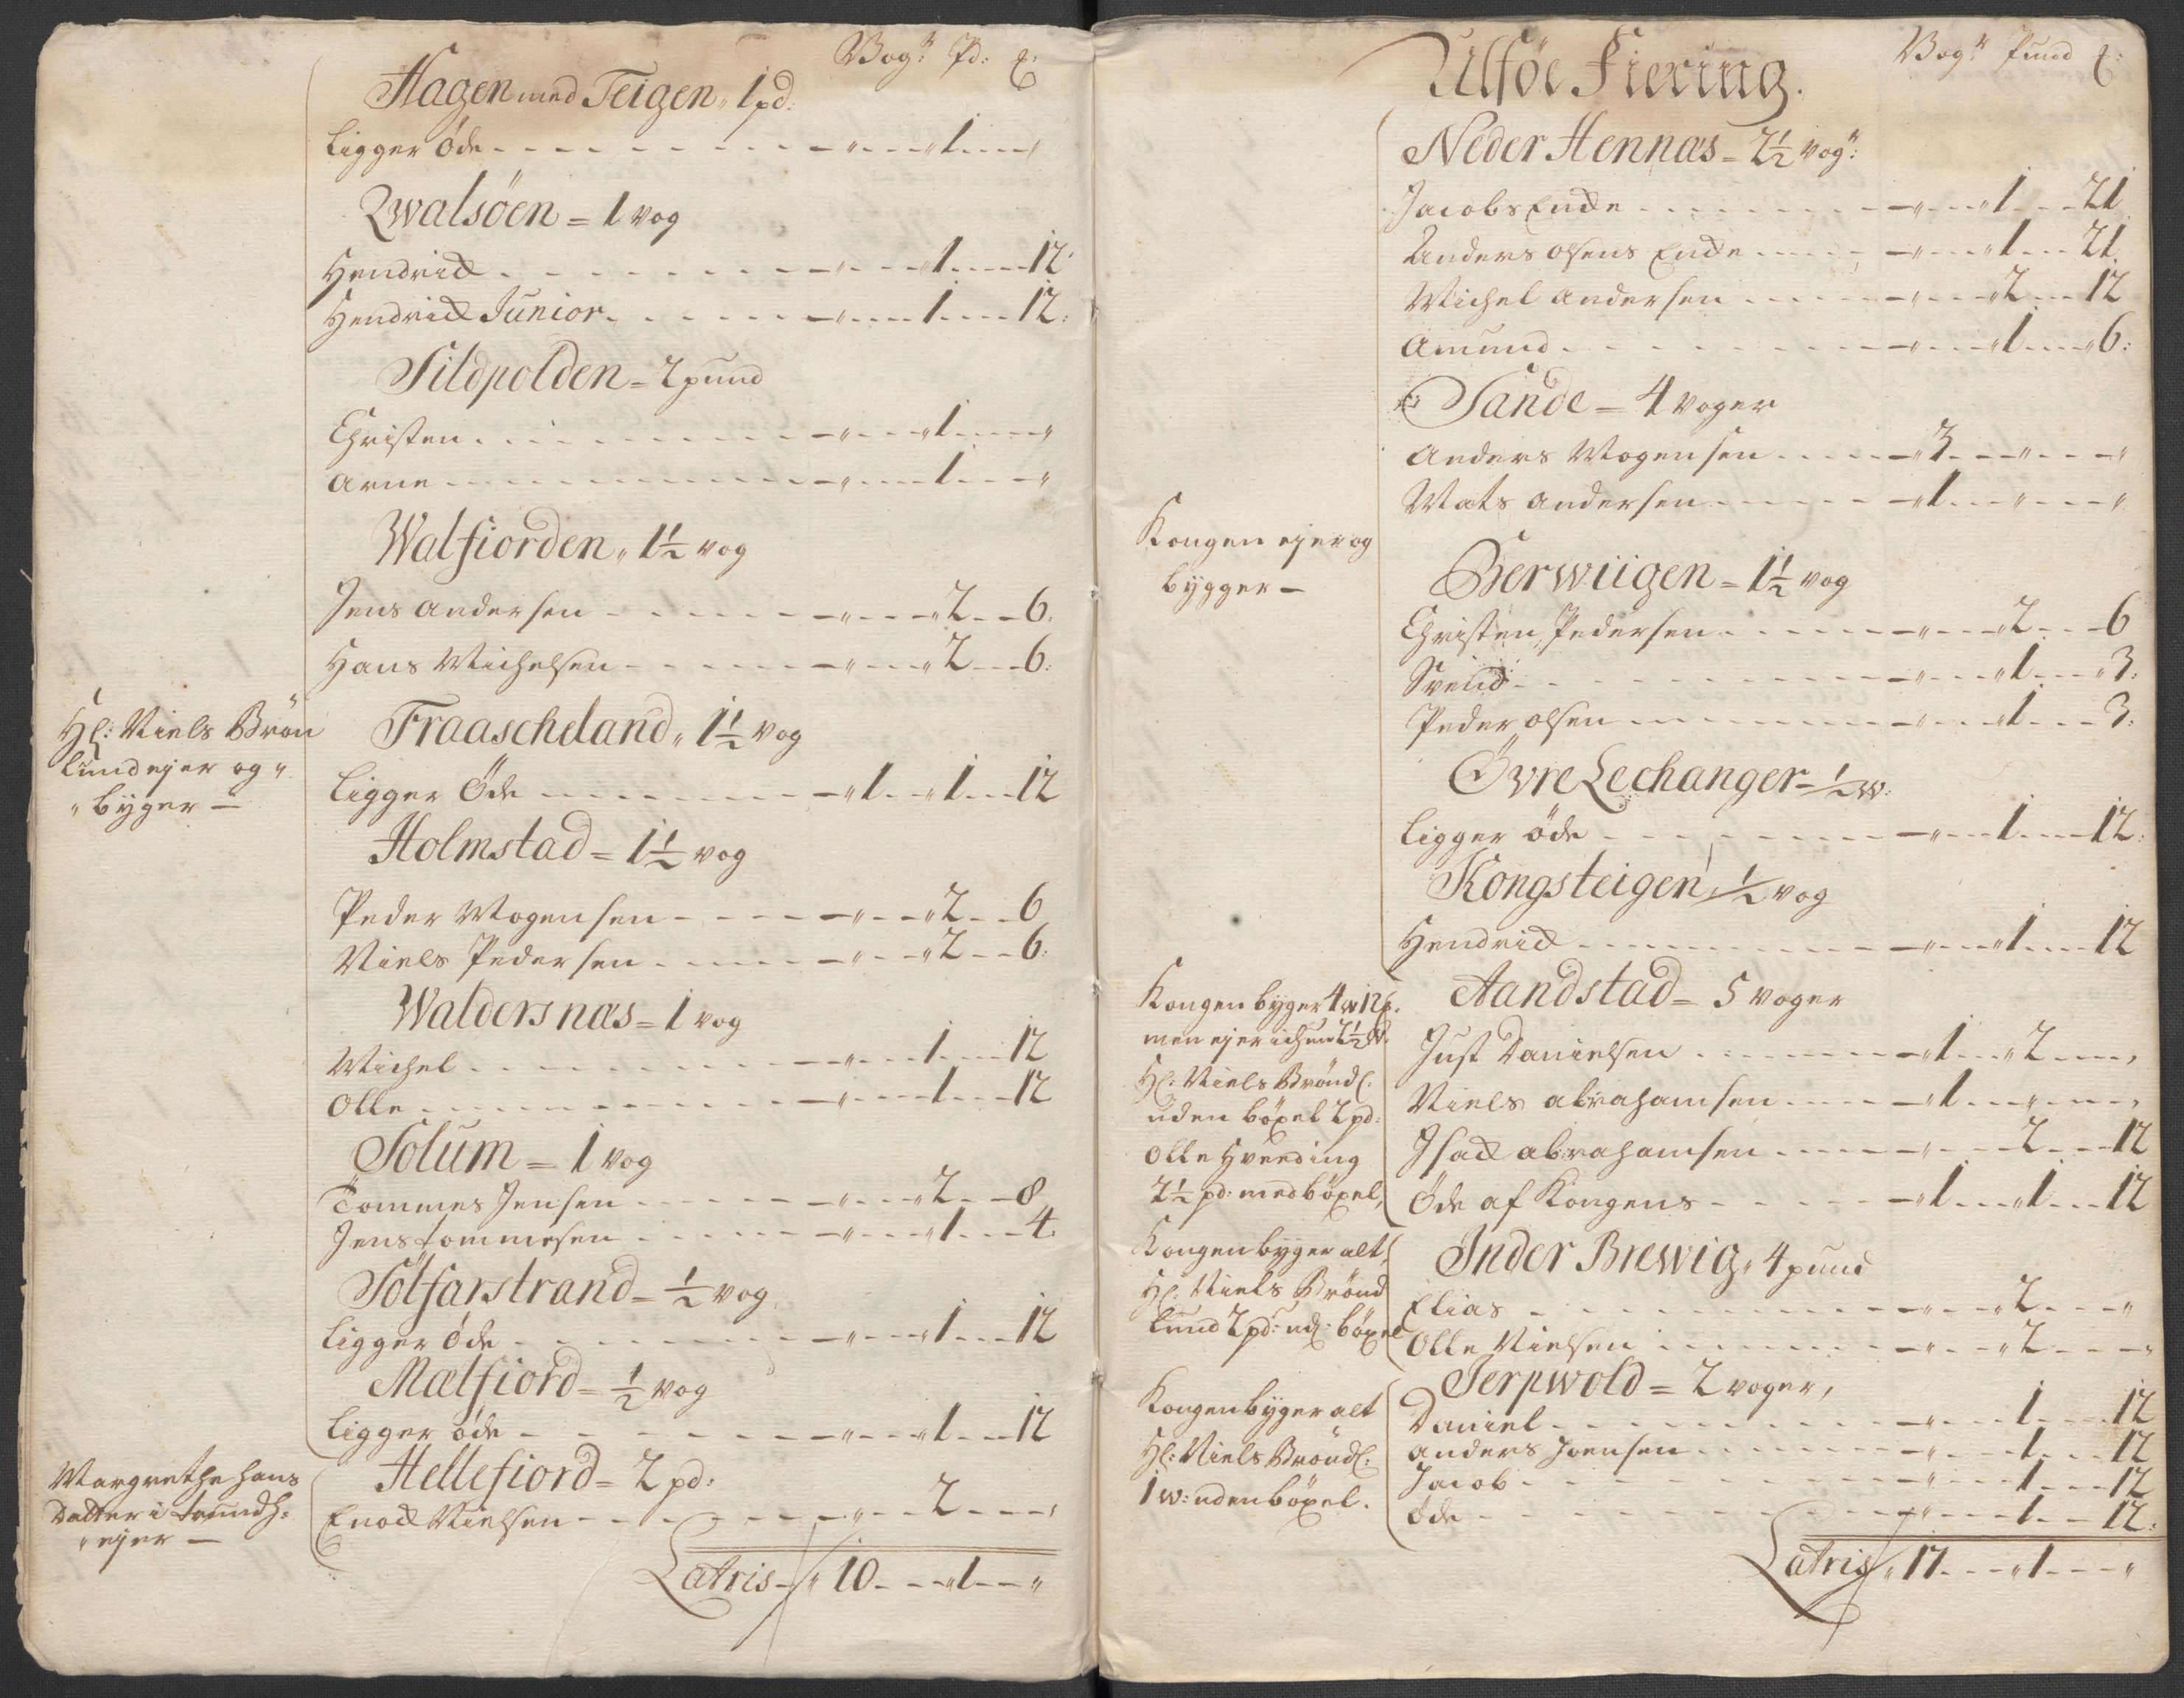 Vog:r Pd: ℔:
Hagen med Teigen „ 1 pd:
Ligger Öde - - - „ - - „ 1 - - „
Qwalsöen = 1 vog
Hendrich - - - „ - - „ 1 - - 12:
Hendrich Junior - - - „ - - 1 - - 12:
Sildpolden = 2 pund
Christen - - - „ - - „ 1 - - „
Arne - - - „ - - 1 - - „
Walfiorden „ 1½ vog
Jens Andersen - - - „ - - „ 2 - - 6:
Hans Michelsen - - - „ - - „ 2 - - 6:
Hl: Niels Brön
lund ejer og „
„ byger —
Fraascheland „ 1½ vog
Ligger Öde - - - „ 1 - - „ 1 - - 12
Holmstad = 1½ vog
Peder Mogensen - - - „ - - „ 2 - - 6
Niels Pedersen - - - „ - - „ 2 - - 6:
Waldersnæs = 1 vog
Michel - - - „ - - 1 - - 12
Olle - - - „ - - 1 - - 12
Solum = 1 vog
Tommes Jensen - - - „ - - „ 2 - - 8
Jens Tommesen - - - „ - - „ 1 - - 4:
Sölfarstrand = ½ vog
Ligger öde - - - „ - - „ 1 - - 12
Mælfiord = ½ vog
Ligger öde - - - „ - - „ 1 - - 12
Margrethe Hans
Datter i Trundh:
„ ejer —
Hellefiord = 2 pd:
Enoch Nielsen - - - „ - - 2 - - „
Latris - „ 10 - - „ 1 - - „
Vog:r Pund ℔:
Ulföe Fiering.
Neder Hennæs = 2½ vog:r
Jacobs Enche - - - „ - - „ 1 - - 21
Anders Olsens Enche - - - „ - - „ 1 - - 21
Michel Andersen - - - „ - - „ 2 - - 12
Amund - - - „ - - „ 1 - - „ 6:
Sande = 4 voger
Anders Mogensen - - - „ 3 - - „ - - „
Mats Andersen - - - „ 1 - - „ - - „
Kongen ejer og
bygger —
Berwiigen = 1½ vog
Christen Pedersen - - - „ - - „ 2 - - 6
Svend - - - „ - - „ 1 - - „ 3:
Peder Olsen - - - „ - - „ 1 - - 3:
Övre Lechanger = ½ w:
Ligger öde - - - „ - - 1 - - 12:
Kongsteigen ½ vog
Hendrich - - - „ - - „ 1 - - 12
Kongen byger 4 w 12 ℔:
men ejer ichun 2½ w:
Hl: Niels Bröndl:
uden böxel 2 pd:
Olle Hveeding
2½ pd: med böxel,
Aandstad = 5 voger
Just Danielsen - - - „ 1 - - „ 2 - - „
Niels Abrahamsen - - - „ 1 - - „ - - „
Isach Abrahamsen - - - „ - - 2 - - 12
Öde af Kongens - - - „ 1 - - „ 1 - - 12
Kongen byger alt,
Hl: Niels Brönd
lund 2 pd: ud: böxel
Inder Brewig „ 4 pund
Elias - - - „ - - „ 2 - - „
Olle Nielsen - - - „ - - „ 2 - - „
Kongen byger alt
Hl: Niels Bröndl:
1 w: uden böxel.
Jerpwold = 2 voger,
Daniel - - - „ - - 1 - - 12
Anders Joensen - - - „ - - 1 - - 12
Jacob - - - „ - - 1 - - 12
Öde - - - „ - - 1 - - 12:
Latris „ 17 - - „ 1 - - „